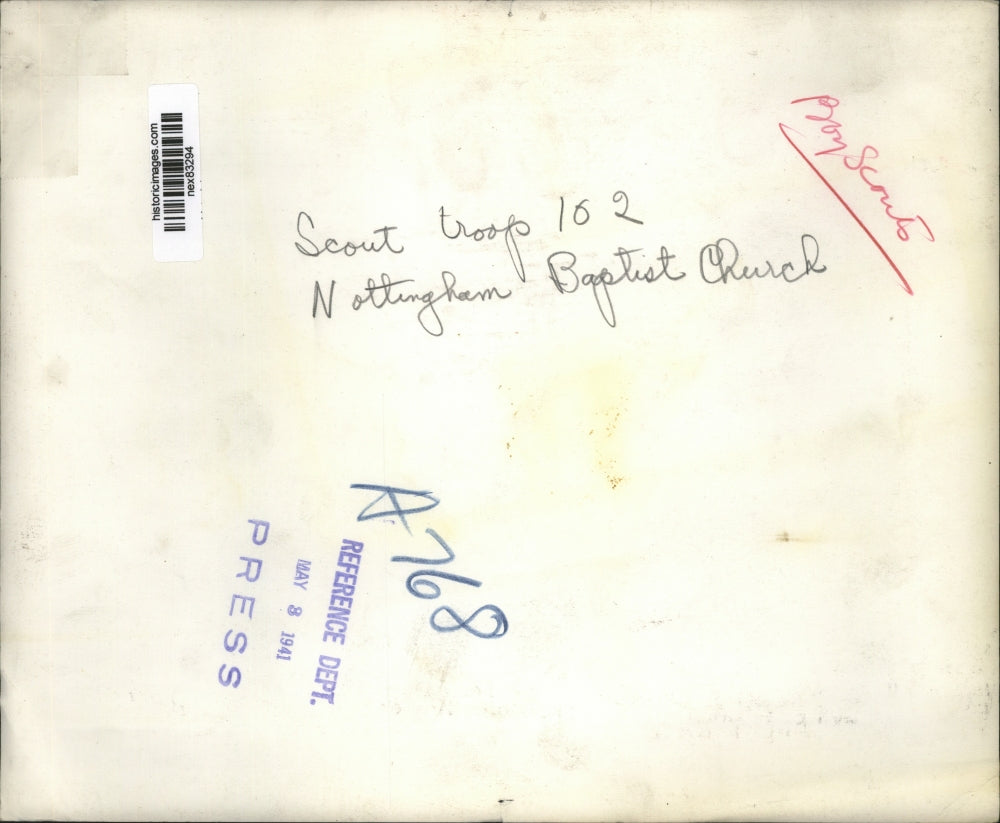 historicimages.com
nex83294
Boy Scouts
Scout troop 162
Nottingham Baptist Church
A768
REFERENCE DEPT.
MAY 8 1941
PRESS